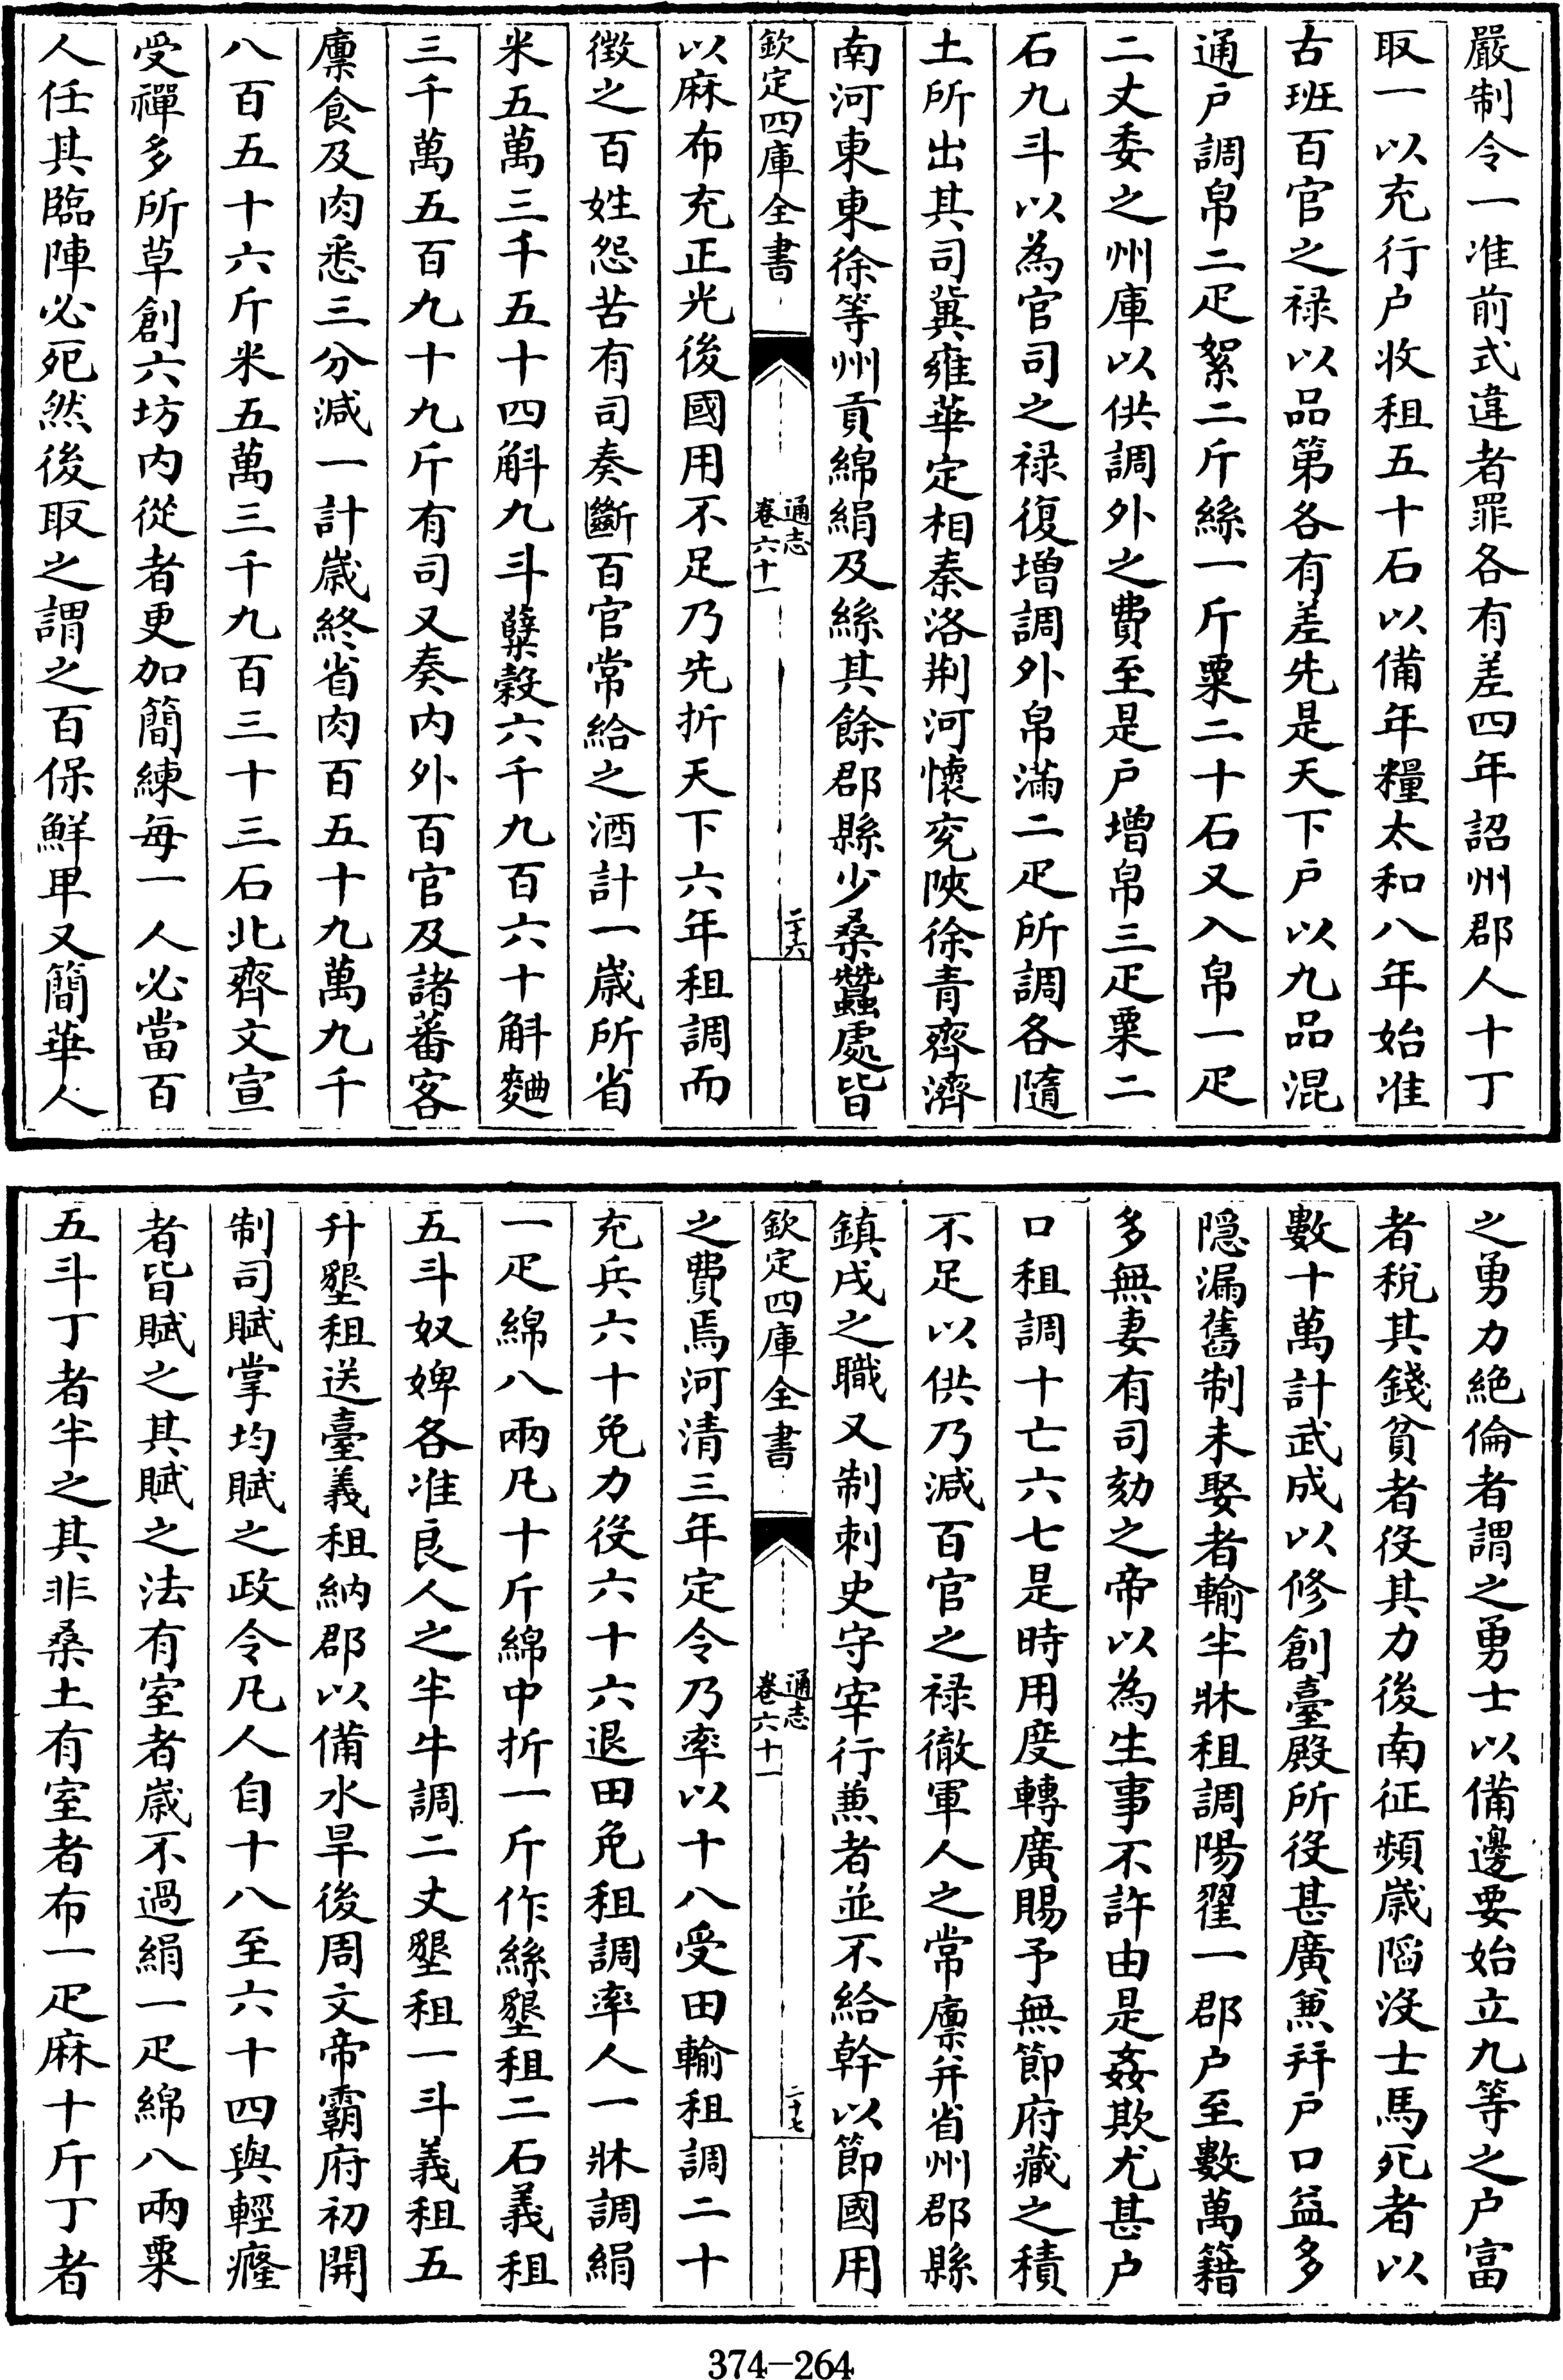 嚴制令一准前式違者罪各有差四年詔州郡人十丁
取一以充行户收租五十石以備年糧太和八年始准
古班百官之禄以品第各有差先是天下户以九品混
通户調帛二疋絮二斤絲一斤粟二十石又入帛一疋
二丈委之州庫以供調外之費至是户增帛三疋粟二
石九斗以為官司之禄復增調外帛滿二疋所調各隨
土所出其司冀雍華定相秦洛荆河懷兖陜徐青齊濟
南河東東徐等州貢綿絹及絲其餘郡縣少桑蠶處皆
欽定四庫全書
通志
卷六十一
二十六
以麻布充正光後國用不足乃先折天下六年租調而
徵之百姓怨苦有司奏斷百官常給之酒計一歲所省
米五萬三千五十四斛九斗糱穀六千九百六十斛麴
三千萬五百九十九斤有司又奏内外百官及諸蕃客
廩食及肉悉三分減一計歲終省肉百五十九萬九千
八百五十六斤米五萬三千九百三十三石北齊文宣
受禪多所草創六坊内從者更加簡練每一人必當百
人任其臨陣必死然後取之謂之百保鮮甲又簡華人
之勇力絶倫者謂之勇士以備邊要始立九等之户富
者稅其錢貧者役其力後南征頻歲陷沒士馬死者以
數十萬計武成以修創臺殿所役甚廣兼并户口益多
隠漏舊制未娶者輸半牀租調陽翟一郡户至數萬籍
多無妻有司劾之帝以為生事不許由是姦欺尤甚户
口租調十亡六七是時用度轉廣賜予無節府藏之積
不足以供乃減百官之禄徹軍人之常廩并省州郡縣
鎮戍之職又制刺史守宰行兼者並不給幹以節國用
欽定四庫全書
通志
卷六十一
二十七
之費焉河清三年定令乃率以十八受田輸租調二十
充兵六十免力役六十六退田免租調率人一牀調絹
一疋綿八兩凡十斤綿中折一斤作絲墾租二石義租
五斗奴婢各准良人之半牛調二丈墾租一斗義租五
升墾租送臺義租納郡以備水旱後周文帝霸府初開
制司賦掌均賦之政令凡人自十八至六十四與輕癃
者皆賦之其賦之法有室者歲不過絹一疋綿八兩粟
五斗丁者半之其非桑土有室者布一疋麻十斤丁者
374-264